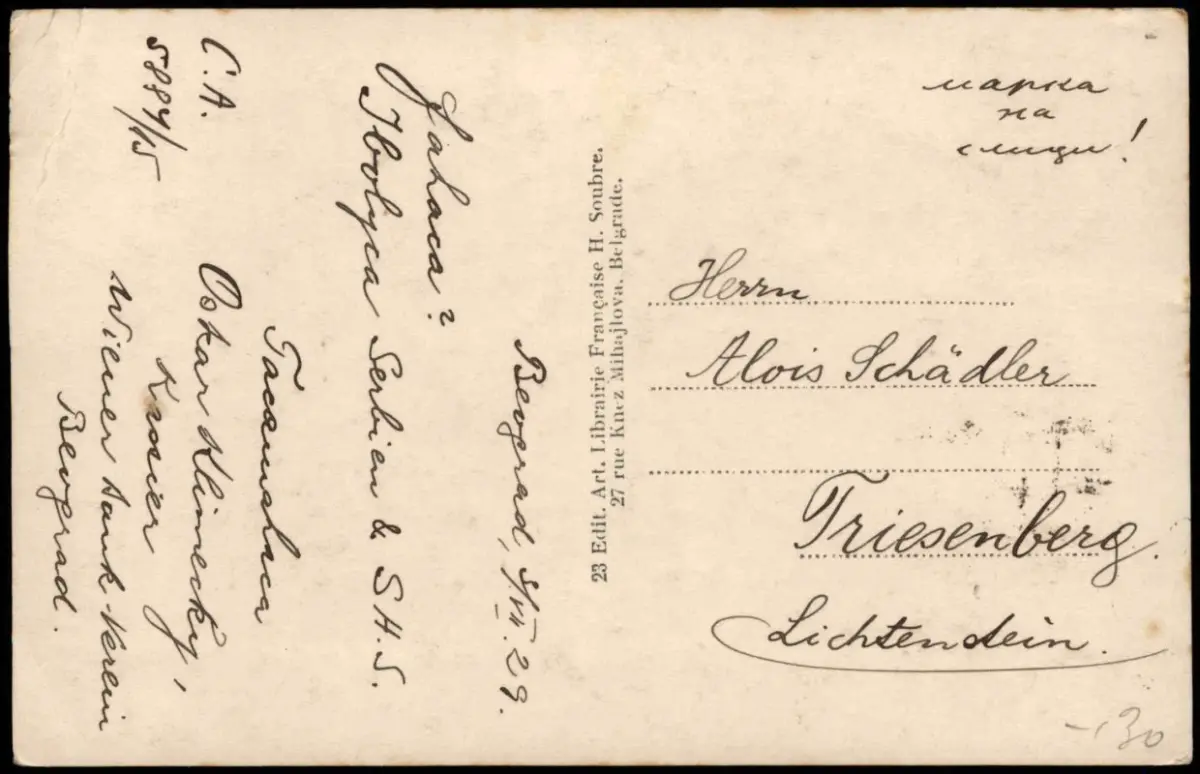 марка
на
слици!
Herrn
Alois Schädler
Triesenberg.
Lichtenstein.
-,30
23 Edit. Art. Librairie Française H. Soubre.
27 rue Knez Mihajlova. Belgrade.
Beograd, 3/VII. 29.
Serbien & SH.S.
Oskar Klimecky,
Wiener Bank-Verein
Beograd.
C.A.
5884/15